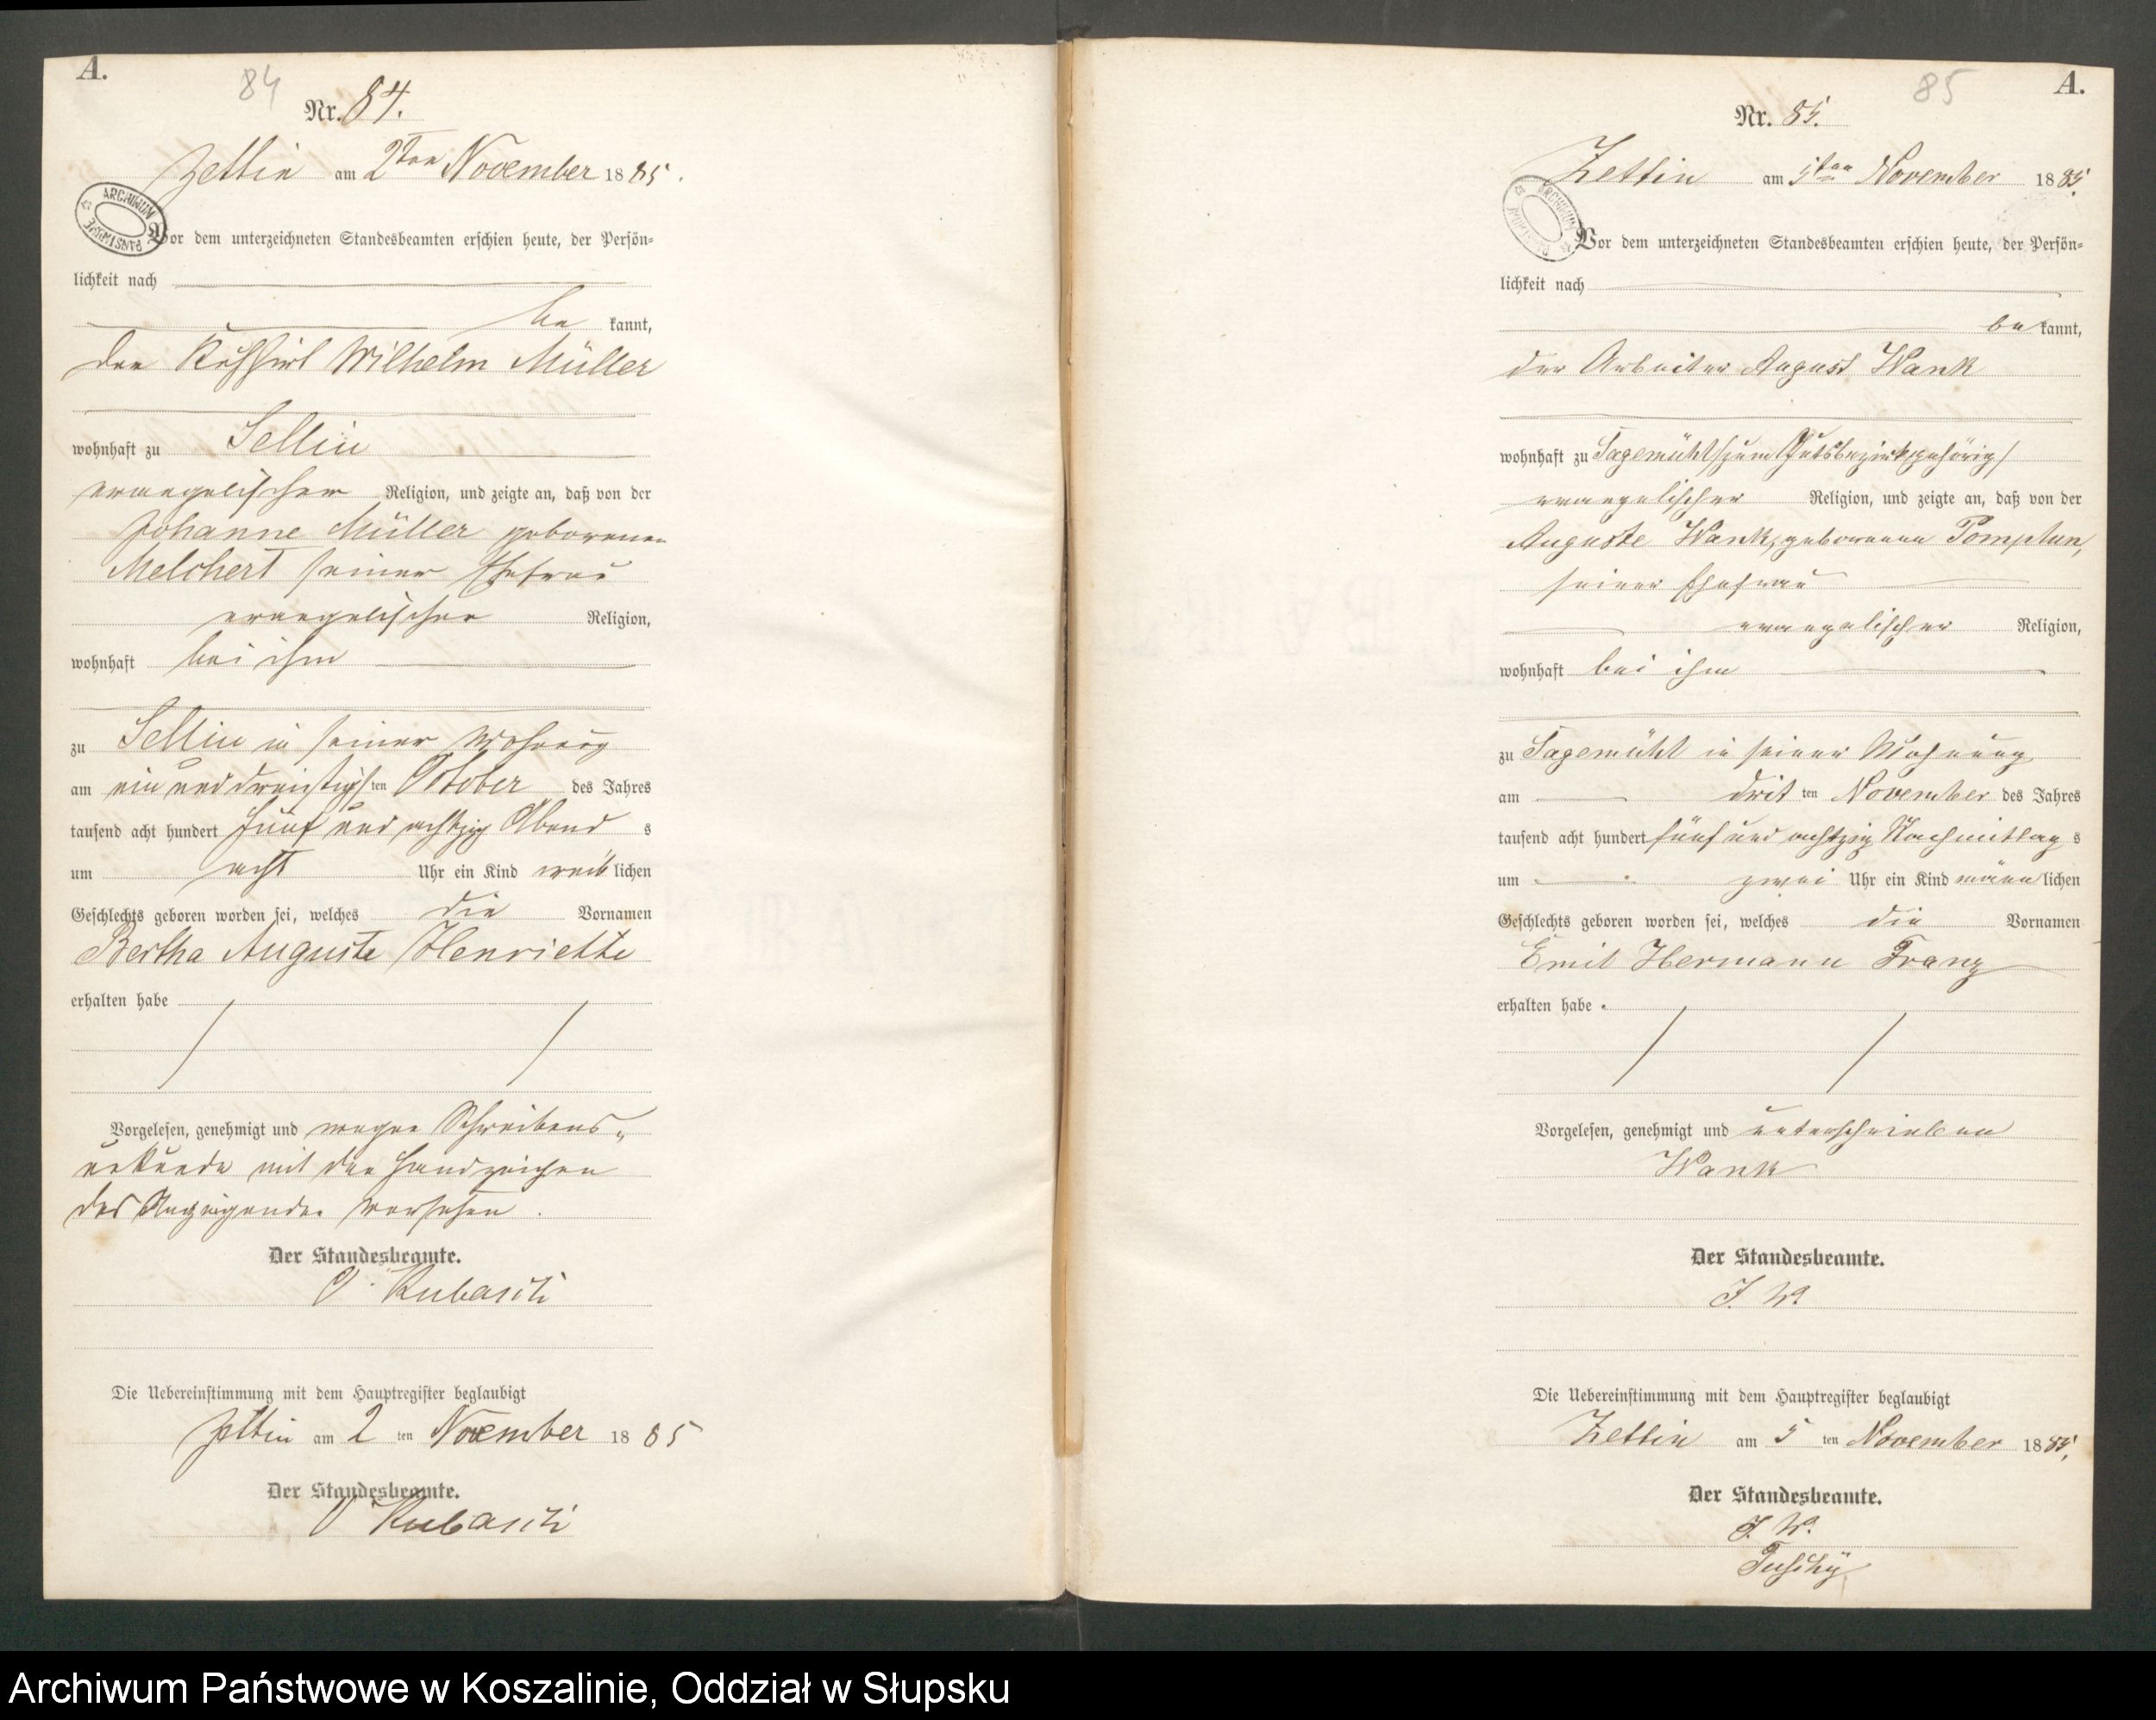 A.
84
Nr. 84.
Zettin am 2ten November 1885.
ARCHIWUM PAŃSTWOWE
Vor dem unterzeichneten Standesbeamten erschien heute, der Persön-
lichkeit nach
be kannt,
der Wilhelm Müller
wohnhaft zu Sellin
evangelischer Religion, und zeigte an, daß von der
Johanne Müller geborenen
Melchert seiner Ehefrau
evangelischer Religion,
wohnhaft bei ihm
zu Sellin in seiner Wohnung
am ein und dreißigsten October des Jahres
tausend acht hundert fünf und achtzig Abend s
um acht Uhr ein Kind weib lichen
Geschlechts geboren worden sei, welches die Vornamen
Bertha Auguste Henriette
erhalten habe
Vorgelesen, genehmigt und wegen Schreibens-
unkunde mit den Handzeichen
des Anzeigenden versehen.
Der Standesbeamte.
Die Uebereinstimmung mit dem Hauptregister beglaubigt
Zettin am 2 ten November 1885
Der Standesbeamte.
85 A.
Nr. 85.
Zettin am 5ten November 1885.
ARCHIWUM
Vor dem unterzeichneten Standesbeamten erschien heute, der Persön-
lichkeit nach
be kannt,
der Arbeiter August Wank
wohnhaft zu Sagemühl (zum Gutsbezirk gehörig)
evangelischer Religion, und zeigte an, daß von der
Auguste Wank, geborenen Pomplun,
seiner Ehefrau
evangelischer Religion,
wohnhaft bei ihm
zu Sagemühl in seiner Wohnung
am drit ten November des Jahres
tausend acht hundert fünf und achtzig Nachmittag s
um zwei Uhr ein Kind männ lichen
Geschlechts geboren worden sei, welches die Vornamen
Emil Hermann Franz
erhalten habe.
Vorgelesen, genehmigt und unterschrieben
Wank
Der Standesbeamte.
J. V.
Die Uebereinstimmung mit dem Hauptregister beglaubigt
Zettin am 5 ten November 1885.
Der Standesbeamte.
J. V.
Archiwum Państwowe w Koszalinie, Oddział w Słupsku